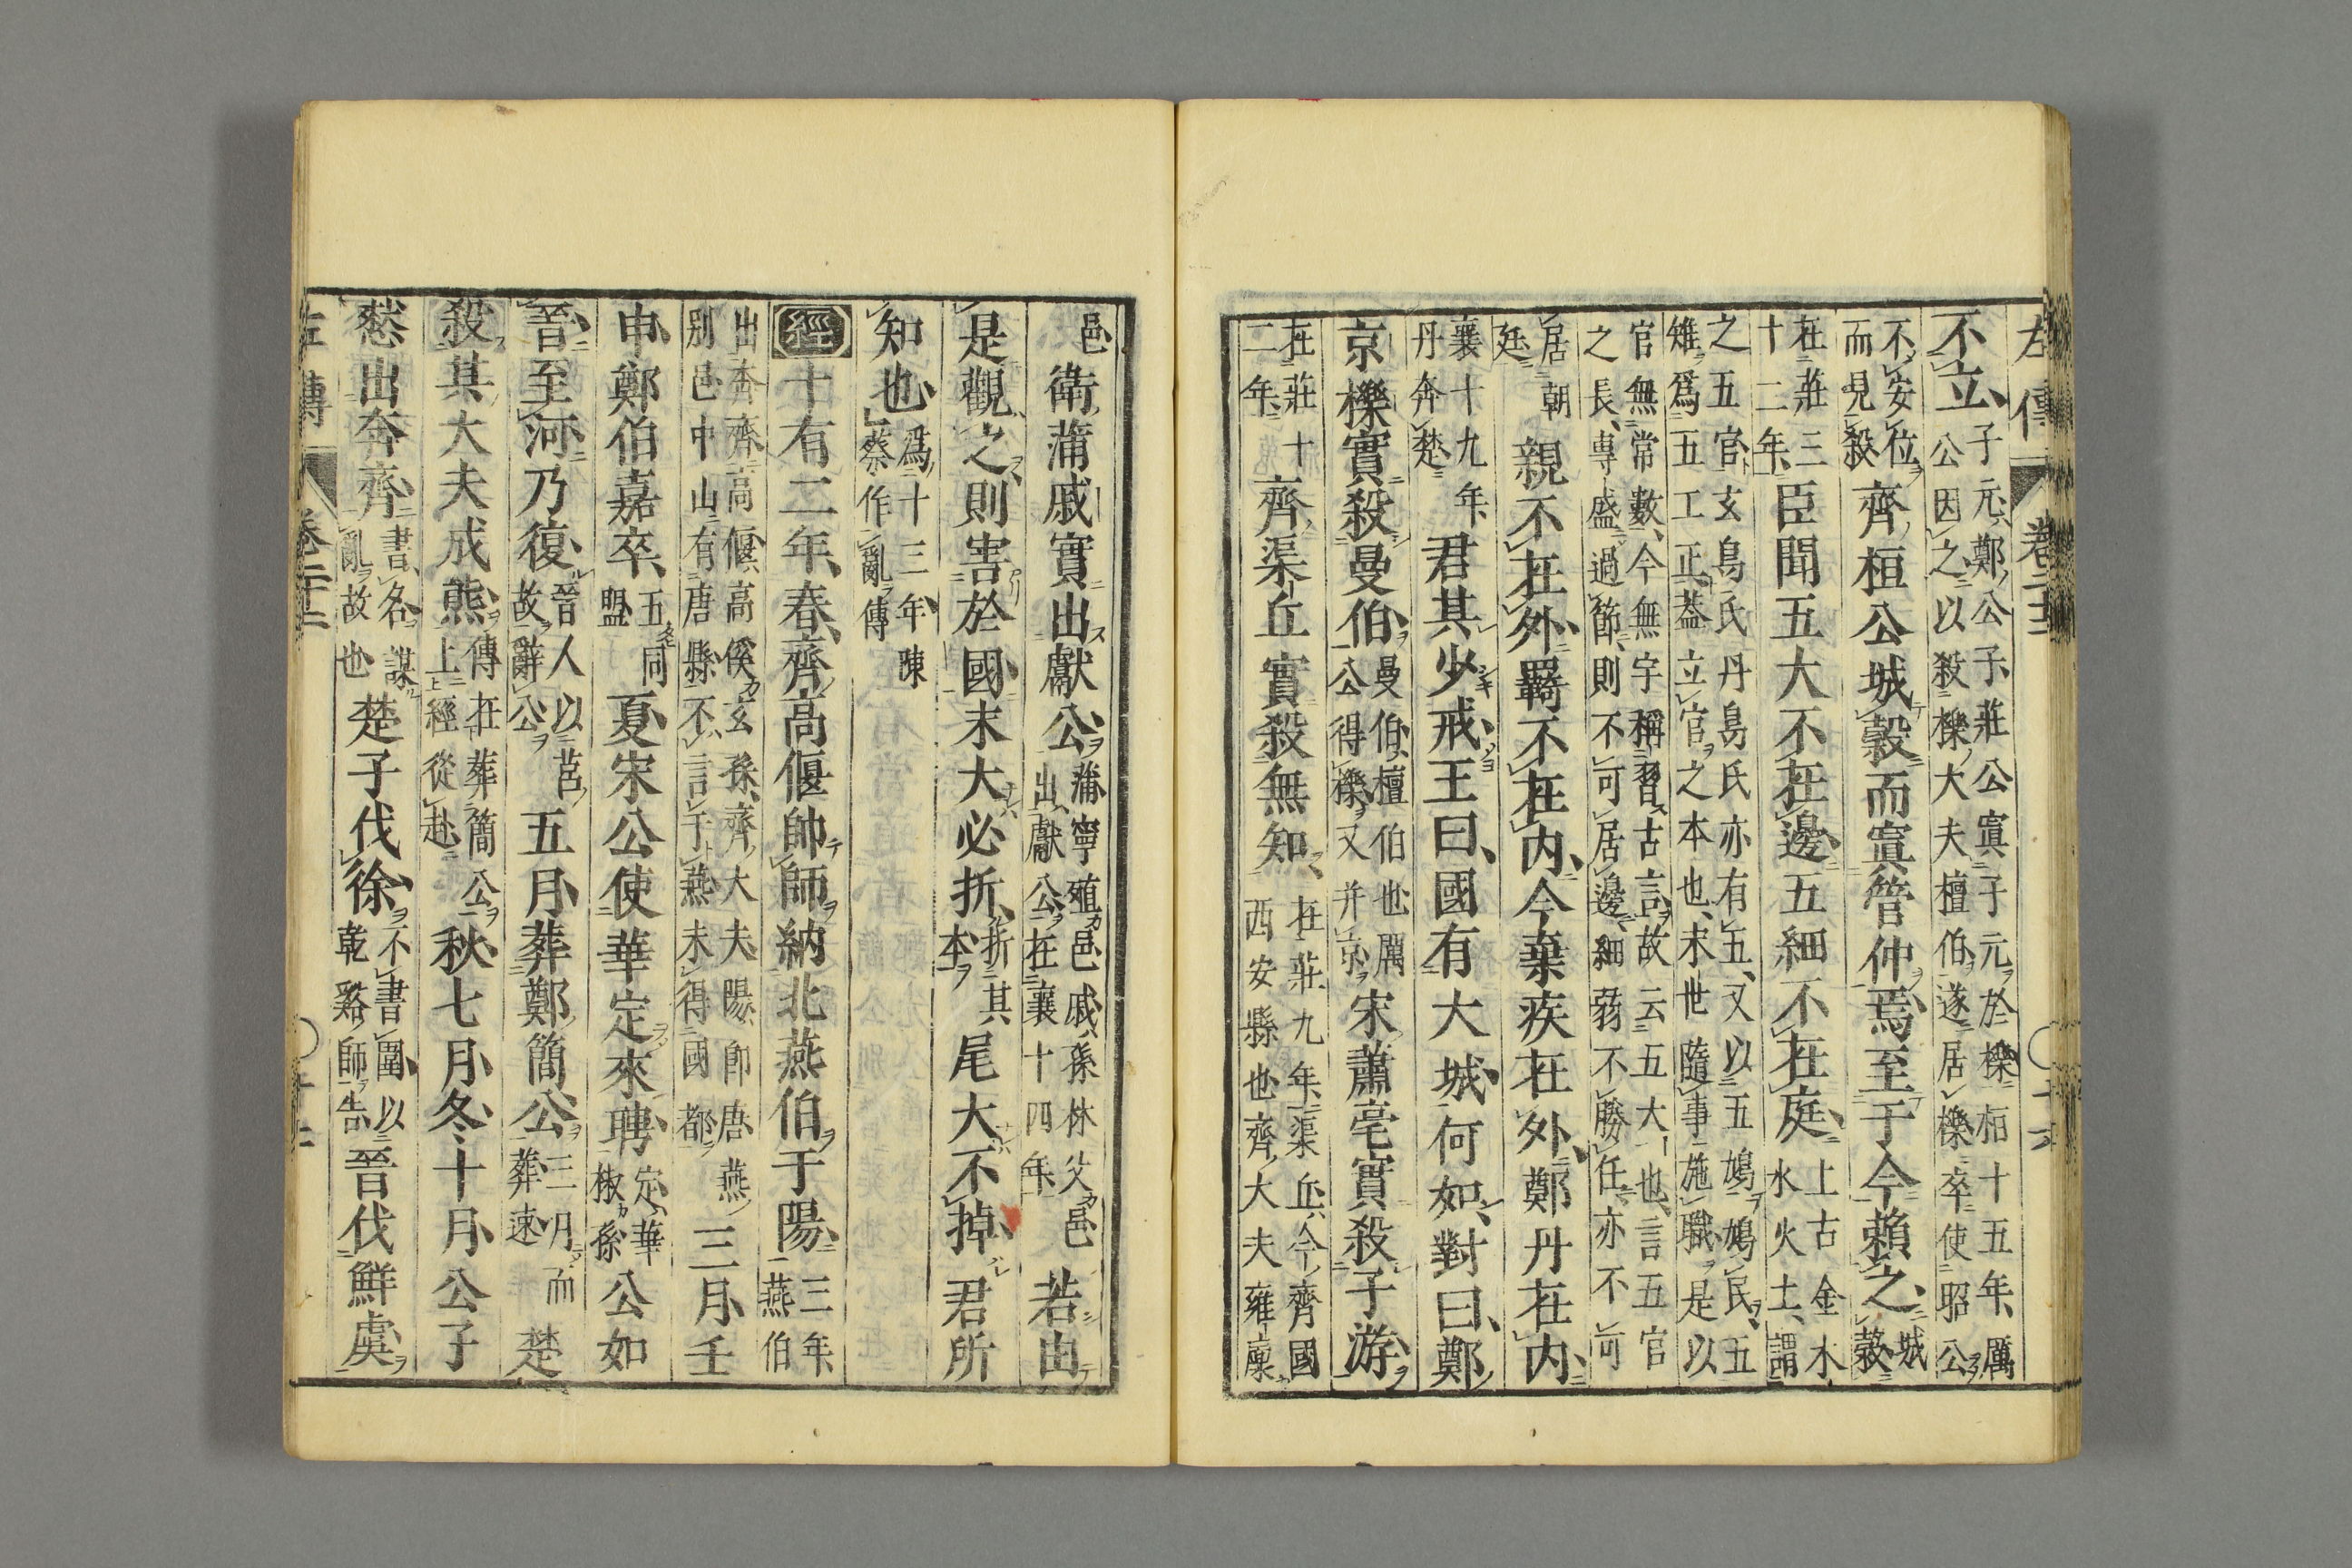 左傳 卷二十二
不立、子元、鄭公子、莊公寘子元於櫟桓十五年、厲
公因之以殺櫟大夫檀伯、遂居櫟、卒使昭公
不安位
而見殺
齊桓公城穀而寘管仲焉、至于今賴之、城
穀
在莊三
十二年、
臣聞五大不在邊、五細不在庭、上古金木
水火土、謂
之五官、玄鳥氏丹鳥氏亦有五、又以五鳩鳩民、五
雉爲五工正、蓋立官之本也、末世隨事施職、是以
官無常數、今無宇稱習古言、故云五大也、言五官
之長、專盛過節、則不可居邊、細弱不勝任、亦不可
居朝
廷
親不在外、羇不在内、今棄疾在外、鄭丹在内、
襄十九年、
丹奔楚
君其少戒、王曰、國有大城何如、對曰、鄭
京櫟實殺曼伯、曼伯、檀伯也、厲
公得櫟、又并京
宋蕭亳實殺子游、
在莊十
二年、
齊渠丘實殺無知、在莊九年、渠丘、今齊國
西安縣也、齊大夫雍廩
邑
衛蒲戚實出獻公、蒲、寧殖邑、戚、孫林父邑
出獻公、在襄十四年
若由
是觀之、則害於國、末大必折、折其
本
尾大不掉、君所
知也、爲十三年陳
蔡作亂傳
經十有二年、春、齊高偃帥師納北燕伯于陽、三年、
燕伯
出奔齊、高偃、高傒玄孫、齊大夫、陽、卽唐、燕
別邑、中山有唐縣、不言于燕、未得國都
三月、壬
申、鄭伯嘉卒、五同
盟
夏、宋公使華定來聘、定、華
椒孫
公如
晉、至河、乃復、晉人以莒
故、辭公
五月、葬鄭簡公、三月而
葬、速
楚
殺其大夫成熊、傳在葬簡公
上、經從赴
秋、七月、冬、十月、公子
憖出奔齊、書名、謀
亂故也
楚子伐徐、不書圍、以
乾谿師告
晉伐鮮虞、
左傳 卷二十二